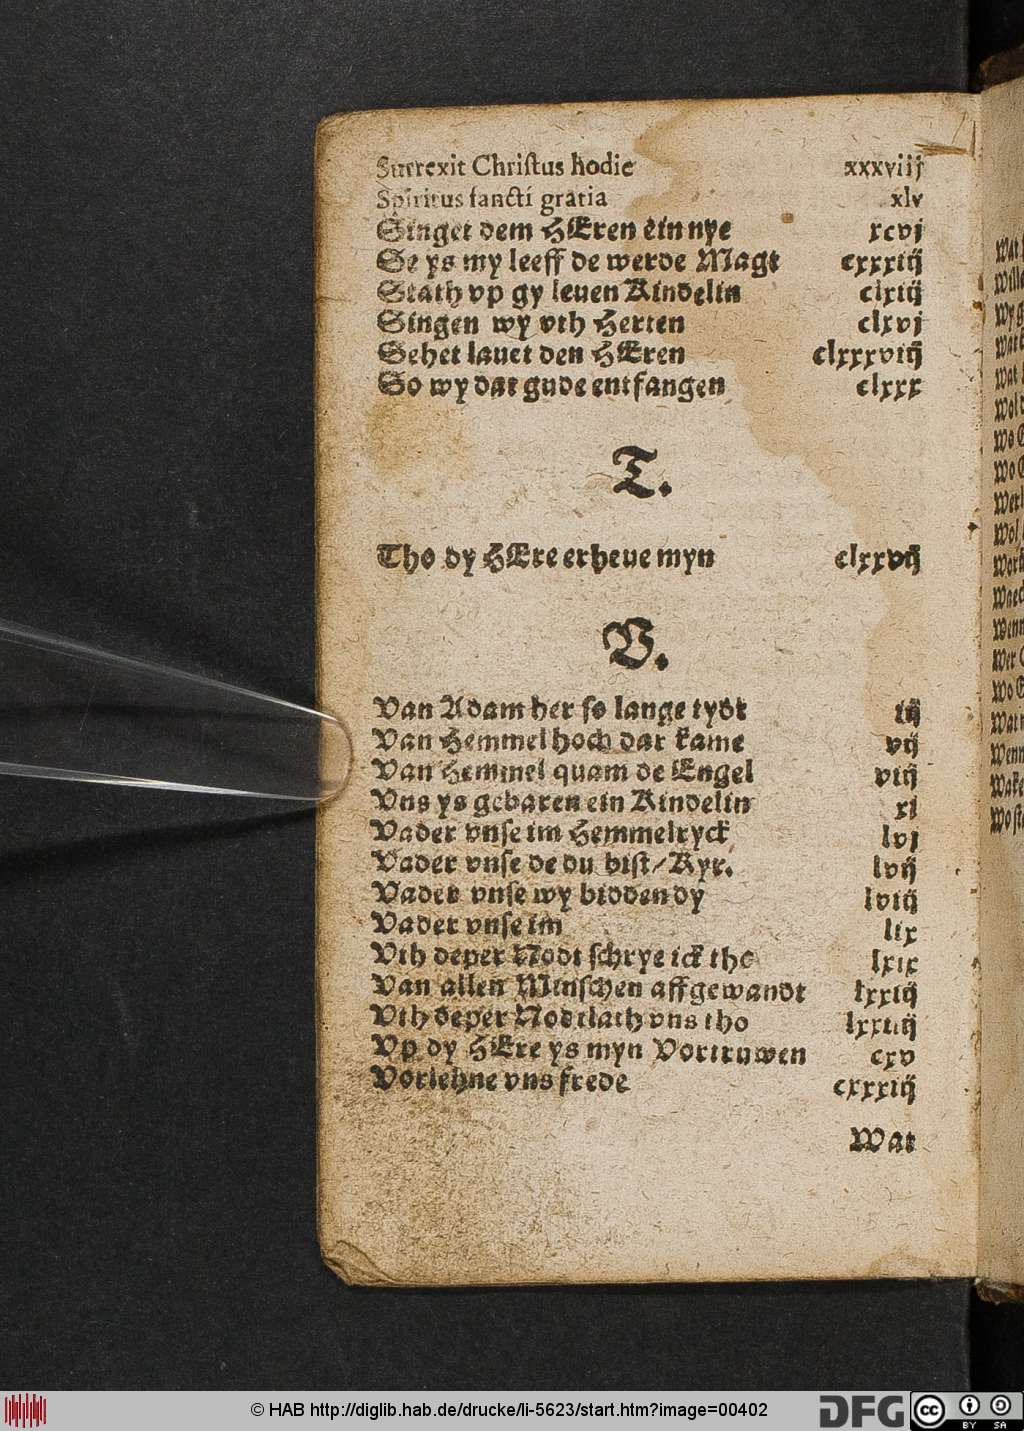 Surrexit Christus hodie xxxviij
Spiritus sancti gratia xlv
Singet dem HEren ein nye xcvj
Se ys my leeff de werde Magt cxxxiij
Stath vp gy leuen Kindelin clxiij
Singen wy vth Herten clxvj
Sehet lauet den HEren clxxxviij
So wy dat gude entfangen clxxx
T.
Tho dy HEre erheue myn clxxvij
V.
Van Adam her so lange tydt iij
Van Hemmel hoch dar kame vij
Van Hemmel quam de Engel viij
Vns ys gebaren ein Kindelin xl
Vader vnse im Hemmelryck lvj
Vader vnse de du bist/ Kyr. lvij
Vader vnse wy bidden dy lviij
Vader vnse im lix
Vth deper Nodt schrye ick tho lxix
Van allen Minschen affgewandt lxxiij
Vth deper Nodt lath vns tho lxxiiij
Vp dy HEre ys myn Vortruwen cxv
Vorlehne vns frede cxxxiij
Wat
© HAB http://diglib.hab.de/drucke/li-5623/start.htm?image=00402
DFG
cc BY SA